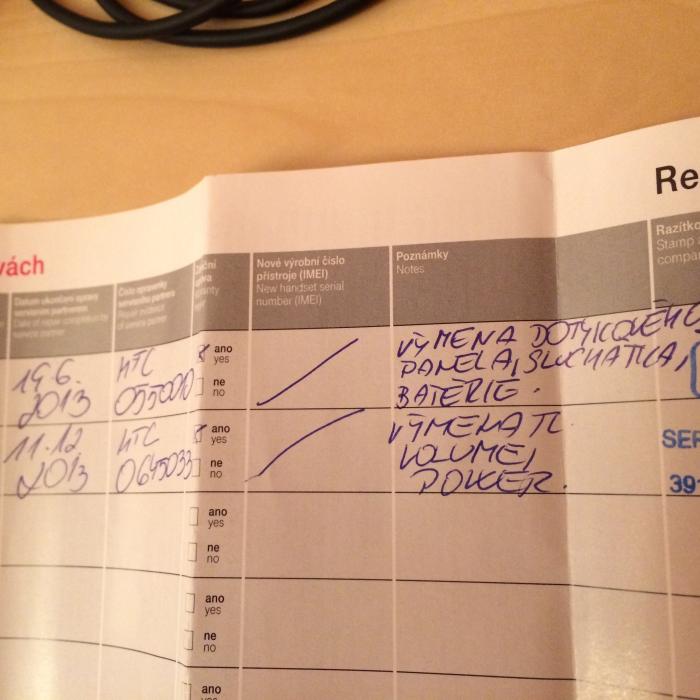 Re
vách
Datum ukončení opravy
servisním partnerem
Date of repair completion by
service partner
Číslo opravenky
servisního partnera
Repair evidence
of service partner
Nové výrobní číslo
přístroje (IMEI)
New handset serial
number (IMEI)
Poznámky
Notes
Razítko
Stamp
compa
19.6.
2013
HTC
0550010
ano
yes
ne
no
VÝMENA DOTYKOVÉHO
PANELA, SLUCHATKA,
BATÉRIE.
11.12
2013
HTC
0645033
ano
yes
ne
no
VÝMENA TL
VOLUME,
POWER.
SER
391
ano
yes
ne
no
ano
yes
ne
no
ano